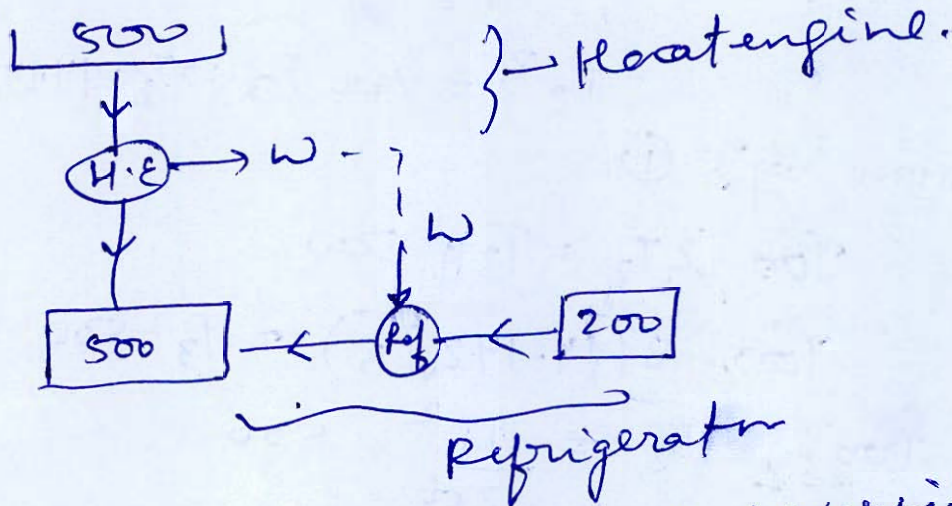 500
} → Heat engine.
H.E → W
W
500
Ref
200
Refrigerator